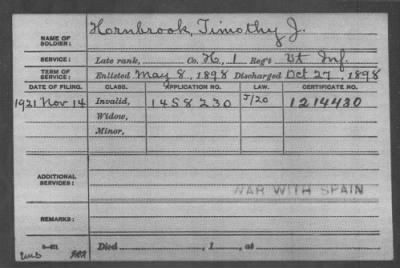 NAME OF SOLDIER: Hornbrook, Timothy J.
SERVICE: Late rank, Co. H, 1 Reg't Vt Inf.
TERM OF SERVICE: Enlisted May 8, 1898 Discharged Oct 27, 1898
DATE OF FILING. CLASS. APPLICATION NO. LAW. CERTIFICATE NO.
1921 Nov 14 Invalid, 1458230 J/20 1214430
Widow,
Minor,
ADDITIONAL SERVICES:
WAR WITH SPAIN
REMARKS:
Died , 1 , at